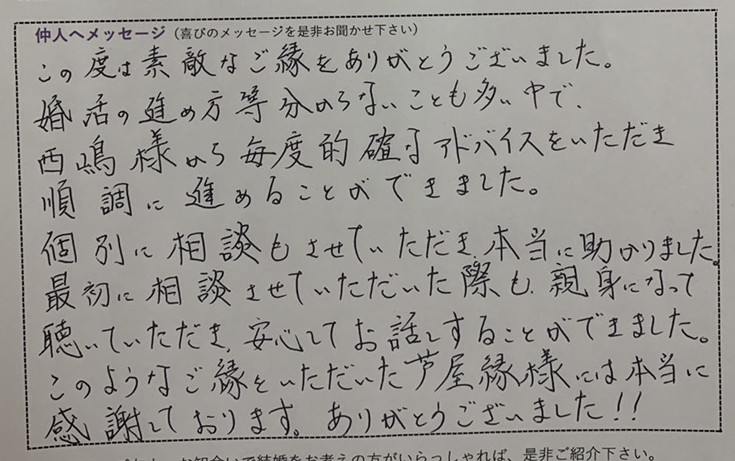 仲人へメッセージ（喜びのメッセージを是非お聞かせ下さい）
この度は素敵なご縁をありがとうございました。
婚活の進め方等分からないことも多い中で、
西嶋様から毎度的確なアドバイスをいただき
順調に進めることができました。
個別に相談もさせていただき、本当に助かりました。
最初に相談させていただいた際も、親身になって
聴いていただき、安心してお話しすることができました。
このようなご縁をいただいた芦屋縁様には本当に
感謝しております。ありがとうございました!!
お知合いで結婚をお考えの方がいらっしゃれば、是非ご紹介下さい。